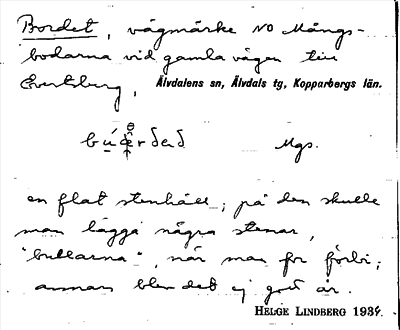 Bordet, vägmärke NO Mångs-
bodarna vid gamla vägen till
Evertsberg, Älvdalens sn, Älvdals tg, Kopparbergs län.
Mgs.
en flat stenhäll; på den skulle
man lägga några stenar,
"bullarna", när man for förbi;
annars blev det ej god år.
HELGE LINDBERG 1934.